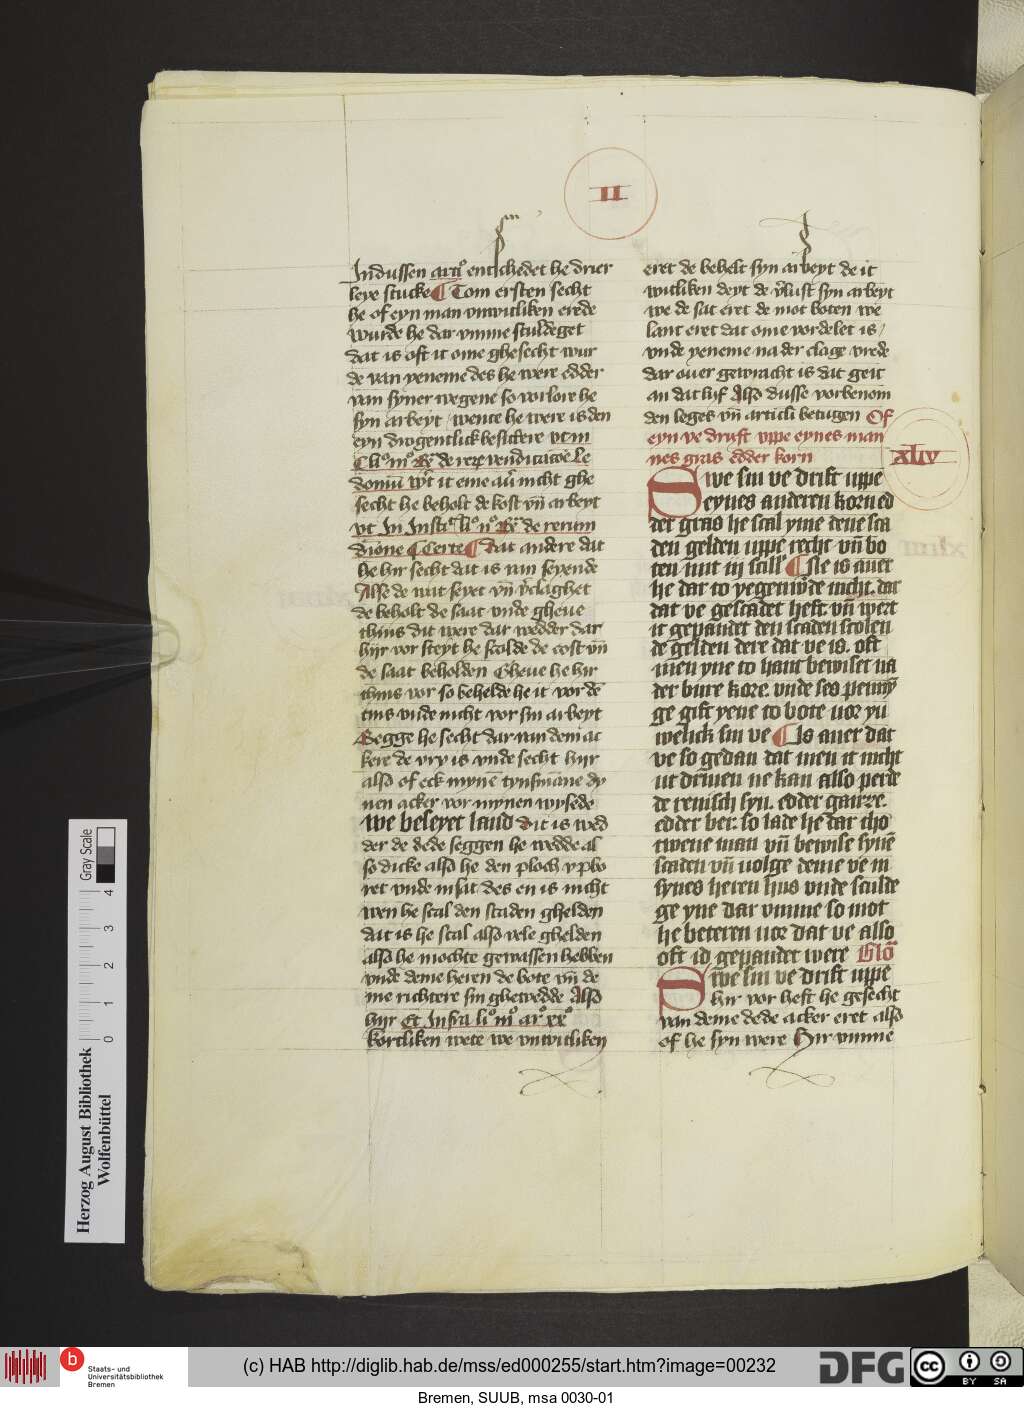 II
In dussen arti° entschedet he drier
leye stucke Tom ersten secht
he of eyn man vnwitliken erede
wurde he dar vmme schuldeget
dat is oft it ome ghesecht wur
de van yeneme des he were edder
van syner wegene so vorlore he
syn arbeyt wente he were is den
eyn drogentlick besittere vt in
secht he beholt de kost vn̄ arbeyt
dat andere dat
he hir secht dat is van seyende
Alse de nut seyet vn̄
de beholt de saat vnde gheue
thins dit were dar wedder dar
hijr vor steyt he scolde de cost vn̄
de saat beholden Gheue he hir
thins vor so behelde he it vor dē
tins vnde nicht vor sin arbeyt
Segge he secht dar van dem ac
kere de vry is vnde secht hijr
also of eck mynē tynsmāne dy
nen acker vor mynen wysede
we beseyet land dit is wed
der de dede seggen he wedde al
so dicke also he den ploch vp bo
ret vnde in sat des en is nicht
wen he scal den scaden ghelden
dat is he scal also vele ghelden
also he mochte gewassen hebben
vnde deme heren de bote vn̄ de
me richtere sin ghewedde Also
hijr Et Infra li° iii° ar° xx°
kortliken wete we vnwitliken
eret de behelt syn arbeyt de it
witliken deyt de v̄lust syn arbeyt
we de sat eret de mot boten we
lant eret dat ome vordelet is
vnde yeneme na der clage vrede
dar ouer gewracht is dat geit
an dat lyf Also dusse vorbenom
den leges vn̄ articli betugen Of
eyn ve druft vppe eynes man
nes gras edder korn
XLIV
Swe sin ve drift uppe
eynes anderen korn ed
der gras he scal yme dene sca
den gelden uppe recht vn̄ bo
ten mit iij scill Is is auer
he dar to yegenw̄de nicht. dar
dat ve gescadet heft vn̄ wert
it gepandet den scaden scolen
de gelden dere dat ve is. oft
men yne to hant bewiset na
der bure kore. vnde ses penny
ge gift yene to bote uor yu
welick sin ve Is auer dat
ve so gedan dat men it nicht
in driuen ne kan also perde
de renisch syn. edder ganze.
edder ber. so lade he dar tho
twene man vn̄ bewise synē
scaden vn̄ uolge deme ve in
synes heren hus vnde sculde
ge yne dar vmme so mot
he beteren uor dat ve also
oft id gepandet were Glo
Swe sin ve drift uppe
hir vor heft he gesecht
van deme dede acker eret also
of he syn were Hir vmme
Herzog August Bibliothek
Wolfenbüttel
0 1 2 3 4
Gray Scale
b
Staats- und
Universitätsbibliothek
Bremen
(c) HAB http://diglib.hab.de/mss/ed000255/start.htm?image=00232
DFG
cc BY SA
Bremen, SUUB, msa 0030-01